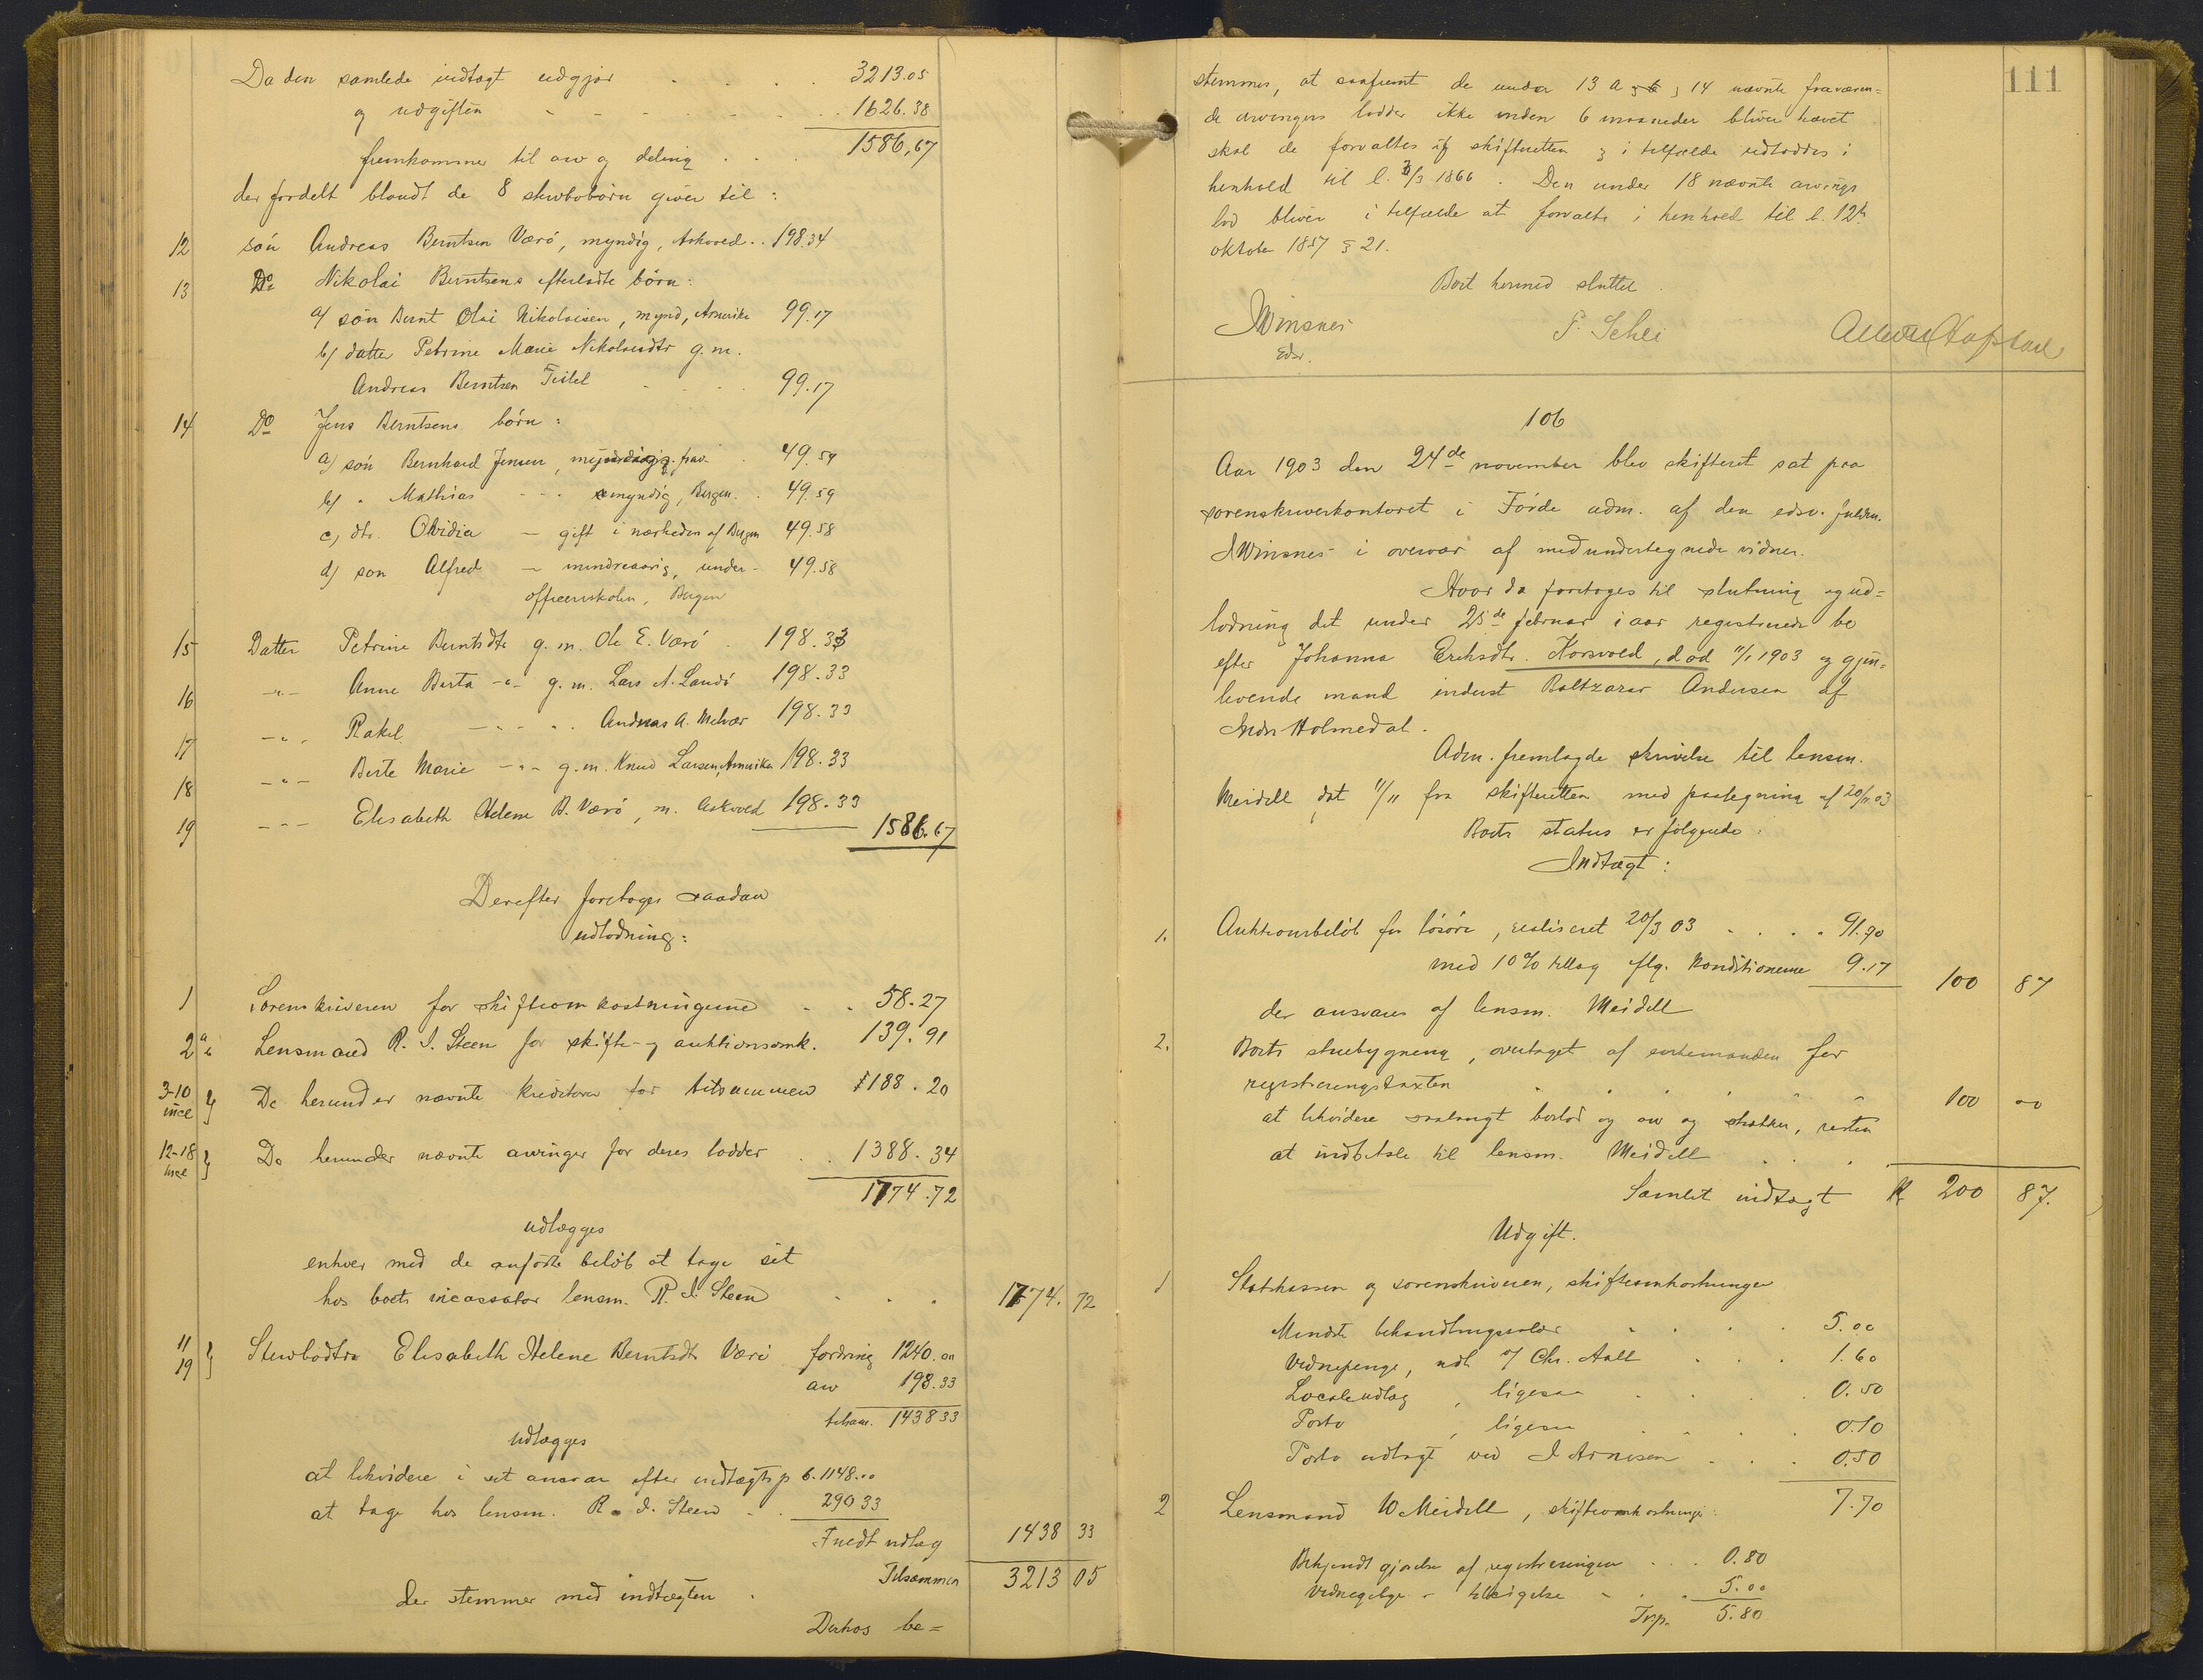 Da den samlede indtægt udgjør . . . 3213.05
og udgiften - - - - . . 1626.38
fremkommer til arv og deling . . . 1586,67
der fordelt blandt de 8 stervbobørn giver til :
12 søn Andreas Berntsen Værø, myndig, Askvoed . . 198.34
13 Do Nikolai Berntsens efterladte børn :
a) søn Bernt Olai Nikolaisen, mynd, Amerika 99.17
b) datter Petrine Marie Nikolaidtr g. m.
Andreas Berntsen Tistel . . . 99.17
14 Do Jens Berntsens børn :
a) søn Bernhard Jensen, frav. . 49.59
b) " Mathias - - - myndig, Bergen . . 49.59
c) dtr. Olvidia — gift i nærheden af Bergen 49.58
d) søn Alfred — mindreaarig, under- 49.58
officerskolen, Bergen
15 Datter Petrine Berntsdtr g. m. Ole E. Værø . 198.33
16 -"- Anne Berta -"- g. m. Lars A. Landø 198.33
17 -"- Rakel - - - . . Andreas A. Melvær 198.33
18 -"- Berte Marie -"- g. m. Knud Larsen, Amerika 198.33
19 -"- Elisabeth Helene B. Værø, m. Askvoed 198.33
1586.67
Derefter foretoges saadan
udlodning :
1 Sorenskriveren for skifteomkostningerne . . 58.27
2 a b Lensmand R. I. Steen for skifte- og auktionsomk. 139.91
3-10 incl } De herunder nævnte kreditorer for tilsammen 188.20
12-18 incl } De herunder nævnte arvinger for deres lodder . . 1388.34
1774.72
udlægges
enhver med de anførte beløb at tage sit
hos boets incassator lensm. R. I. Steen . . . 1774. 72
11 19 } Stervbodtr Elisabeth Helene Berntsdtr Værø fordring 1240.00
arv 198.33
tilsam. 1438 33
udlægges
at likvidere i sit ansvar efter indtægtsp 6. 1148.00
at tage hos lensm. R. I. Steen . . 290 33
Fuldt udlæg 1438 33
Tilsammen 3213 05
der stemmer med indtægten .
Derhos be=
111
stemmes, at saafremt de under 13 a og 14 nævnte fraværen=
de arvingers lodder ikke inden 6 maaneder bliver hævet
skal de forvaltes af skifteretten og i tilfælde udloddes i
henhold til l. 3/3 1866 . Den under 18 nævnte arvings
lod bliver i tilfælde at forvalte i henhold til l. 12te
oktober 1857 § 21.
Boet hermed sluttet .
IWinsnes P. Schei
edsv.
106
Aar 1903 den 24de november blev skifteret sat paa
sorenskriverkontoret i Førde adm. af den edsv. fuldm.
IWinsnes i overvær af medundertegnede vidner.
Hvor da foretoges til slutning og ud=
lodning det under 25de februar i aar registrerede bo
efter Johanna Eriksdtr. Korsvold, død 11/1 1903 og gjen=
levende mand inderst Baltzarar Andersen af
Indre Holmedal .
Adm. fremlagde skrivelse til lensm.
Meidell dat 11/11 fra skifteretten med paategning af 20/11 03
Boets status er følgende :
Indtægt :
1. Auktionsbeløb for løsøre, realiseret 20/3 03 . . . . 91.90
med 10% tillæg flg. konditionerne 9.17 100 87
der ansvares af lensm. Meidell
2. Boets stuebygning, overtaget af enkemanden for
registreringstaxten . . . . . 100 00
at likvidere saalangt boslod og arv og strækker, resten
at indbetale til lensm. Meidell . . .
Samlet indtægt Kr 200 87.
Udgift.
1 Statskassen og sorenskriveren, skifteomkostninger
Mindste behandlingssalær . . . . 5.00
Vidnepenge, udl. af Chr. Aall . . . 1.60
Localeudlæg , ligesaa . . . 0.50
Porto , ligesaa . . . 0.10
Porto udlagt ved I Arnesen . . . 0.50
7.70
2 Lensmand W Meidell, skifteomkostninger :
Bekjendtgjørelse af registreringen . . . 0.80
Vidnegebyr - tilsigelse - . . 5.00
Trsp. 5.80